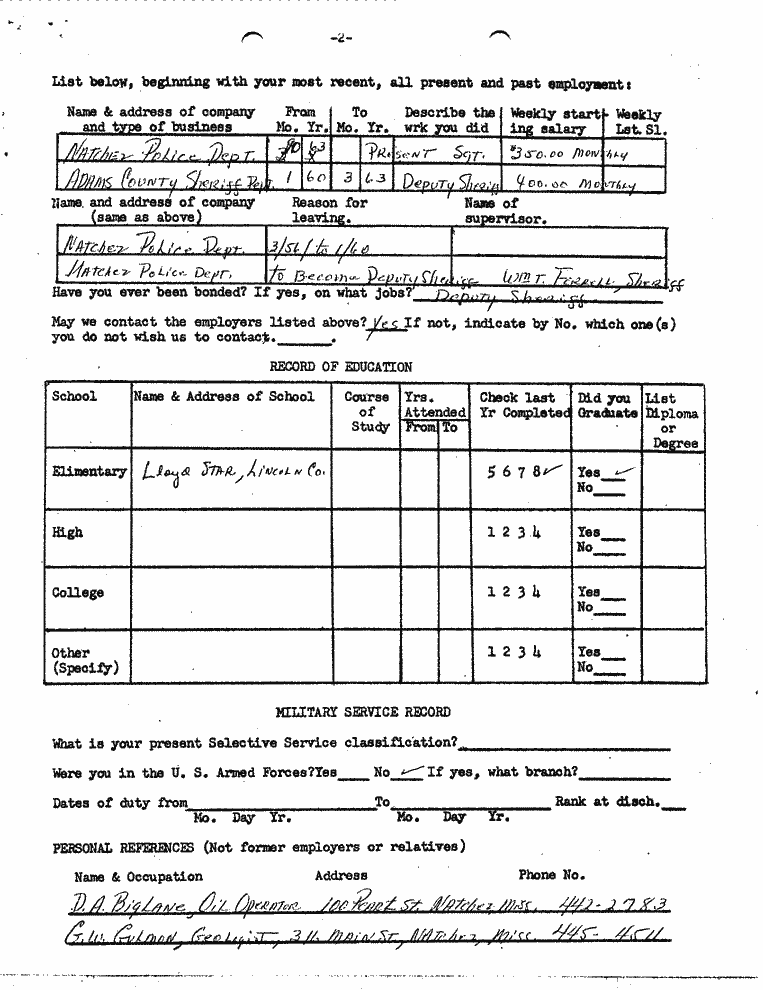 -2-
List below, beginning with your most recent, all present and past employment:
Name & address of company From To Describe the Weekly start- Weekly
and type of business Mo. Yr. Mo. Yr. wrk you did ing salary Lst. Sl.
Natchez Police Dept. 63 Present Sgt. $350.00 Monthly
Adams County Sheriff Dept. 1 60 3 63 Deputy Sheriff 400.00 Monthly
Name and address of company Reason for Name of
(same as above) leaving. supervisor.
Natchez Police Dept. 3/56/ to 1/60
Natchez Police Dept. to Become Deputy Sheriff Wm T. Ferrell, Sheriff
Have you ever been bonded? If yes, on what jobs? Deputy Sheriff
May we contact the employers listed above? Yes If not, indicate by No. which one(s)
you do not wish us to contact.______.
RECORD OF EDUCATION
School Name & Address of School Course Yrs. Check last Did you List
of Attended Yr Completed Graduate Diploma
Study From To or
Degree
Elimentary Lloyd Star, Lincoln Co. 5 6 7 8✓ Yes ✓
No___
High 1 2 3 4 Yes___
No___
College 1 2 3 4 Yes___
No___
Other 1 2 3 4 Yes___
(Specify) No___
MILITARY SERVICE RECORD
What is your present Selective Service classification?______
Were you in the U. S. Armed Forces?Yes___ No ✓ If yes, what branch?______
Dates of duty from______To______ Rank at disch.___
Mo. Day Yr. Mo. Day Yr.
PERSONAL REFERENCES (Not former employers or relatives)
Name & Occupation Address Phone No.
D.A. Biglane, Oil Operator 100 Pearl St. Natchez Miss. 442-2783
G.W. Gulmon, Geologist, 311 Main St, Natchez, Miss. 445-4511